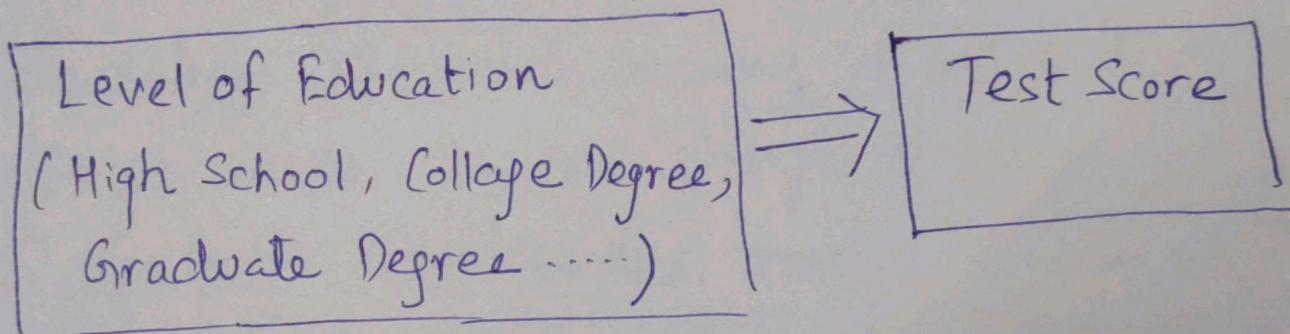 Level of Education
(High School, Collage Degree,
Graduate Degree .....)
Test Score